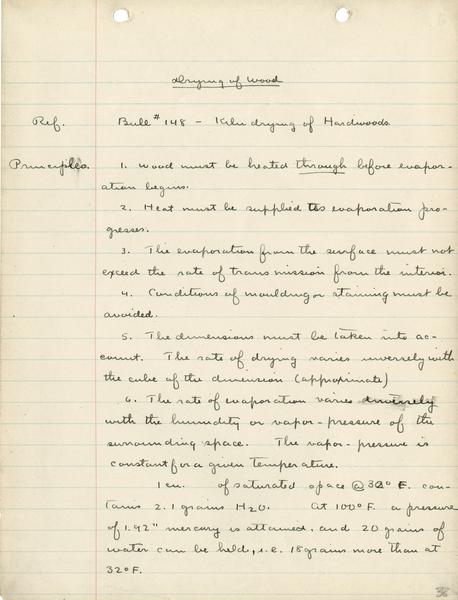 Drying of Wood
Ref. Bull # 148 - Kiln drying of Hardwoods
Principles. 1. Wood must be heated through before evapor-
ation begins.
2. Heat must be supplied as evaporation pro-
gresses.
3. The evaporation from the surface must not
exceed the rate of transmission from the interior.
4. Conditions of moulding or staining must be
avoided.
5. The dimensions must be taken into ac-
count. The rate of drying varies inversely with
the cube of the dimension (approximate)
6. The rate of evaporation varies inversely
with the humidity or vapor-pressure of the
surrounding space. The vapor-pressure is
constant for a given temperature.
1 cu. of saturated space @ 32° F. con-
tains 2.1 grains H2O. At 100° F. a pressure
of 1.92" mercury is attained, and 20 grains of
water can be held, i.e. 18 grains more than at
32° F.